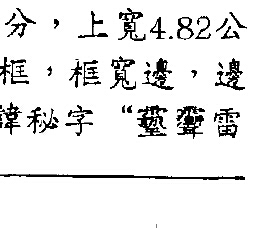 分，上寬4.82公
框，框寬邊，邊
諱秘字“
雷